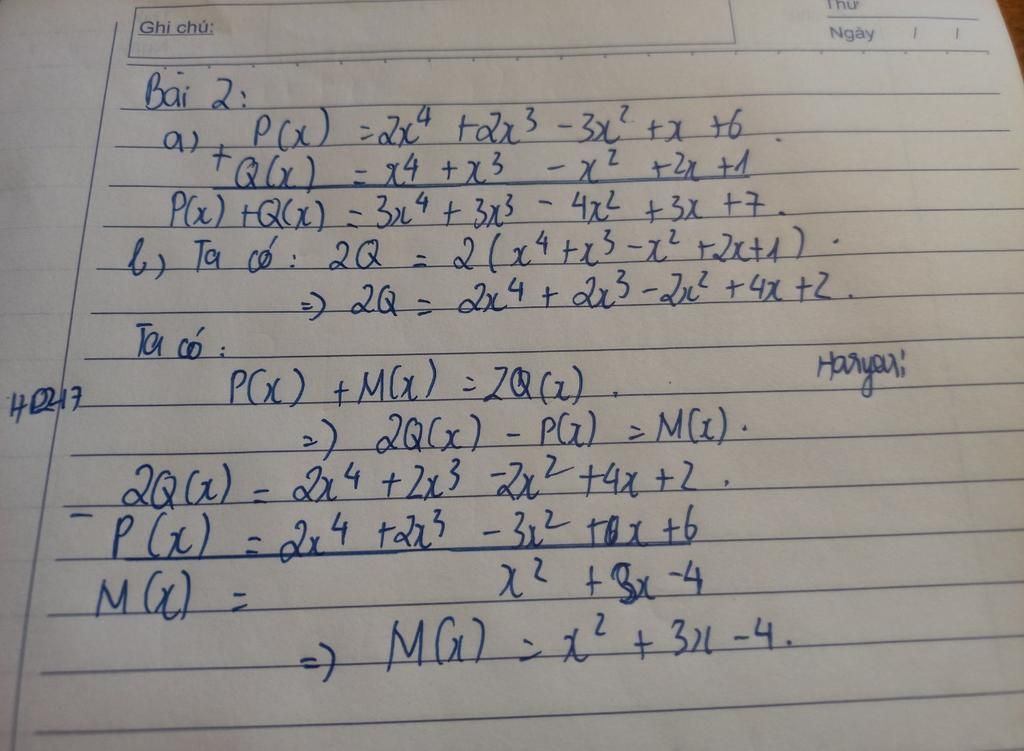 Ghi chú:
Thứ
Ngày / /
Bài 2:
a) P(x) = 2x⁴ + 2x³ - 3x² + x + 6.
+ Q(x) = x⁴ + x³ - x² + 2x + 1
P(x) + Q(x) = 3x⁴ + 3x³ - 4x² + 3x + 7.
b) Ta có: 2Q = 2(x⁴ + x³ - x² + 2x + 1).
=> 2Q = 2x⁴ + 2x³ - 2x² + 4x + 2.
Ta có:
P(x) + M(x) = 2Q(x).
=> 2Q(x) - P(x) = M(x).
2Q(x) = 2x⁴ + 2x³ - 2x² + 4x + 2.
- P(x) = 2x⁴ + 2x³ - 3x² + x + 6
M(x) = x² + 3x - 4
=> M(x) = x² + 3x - 4.